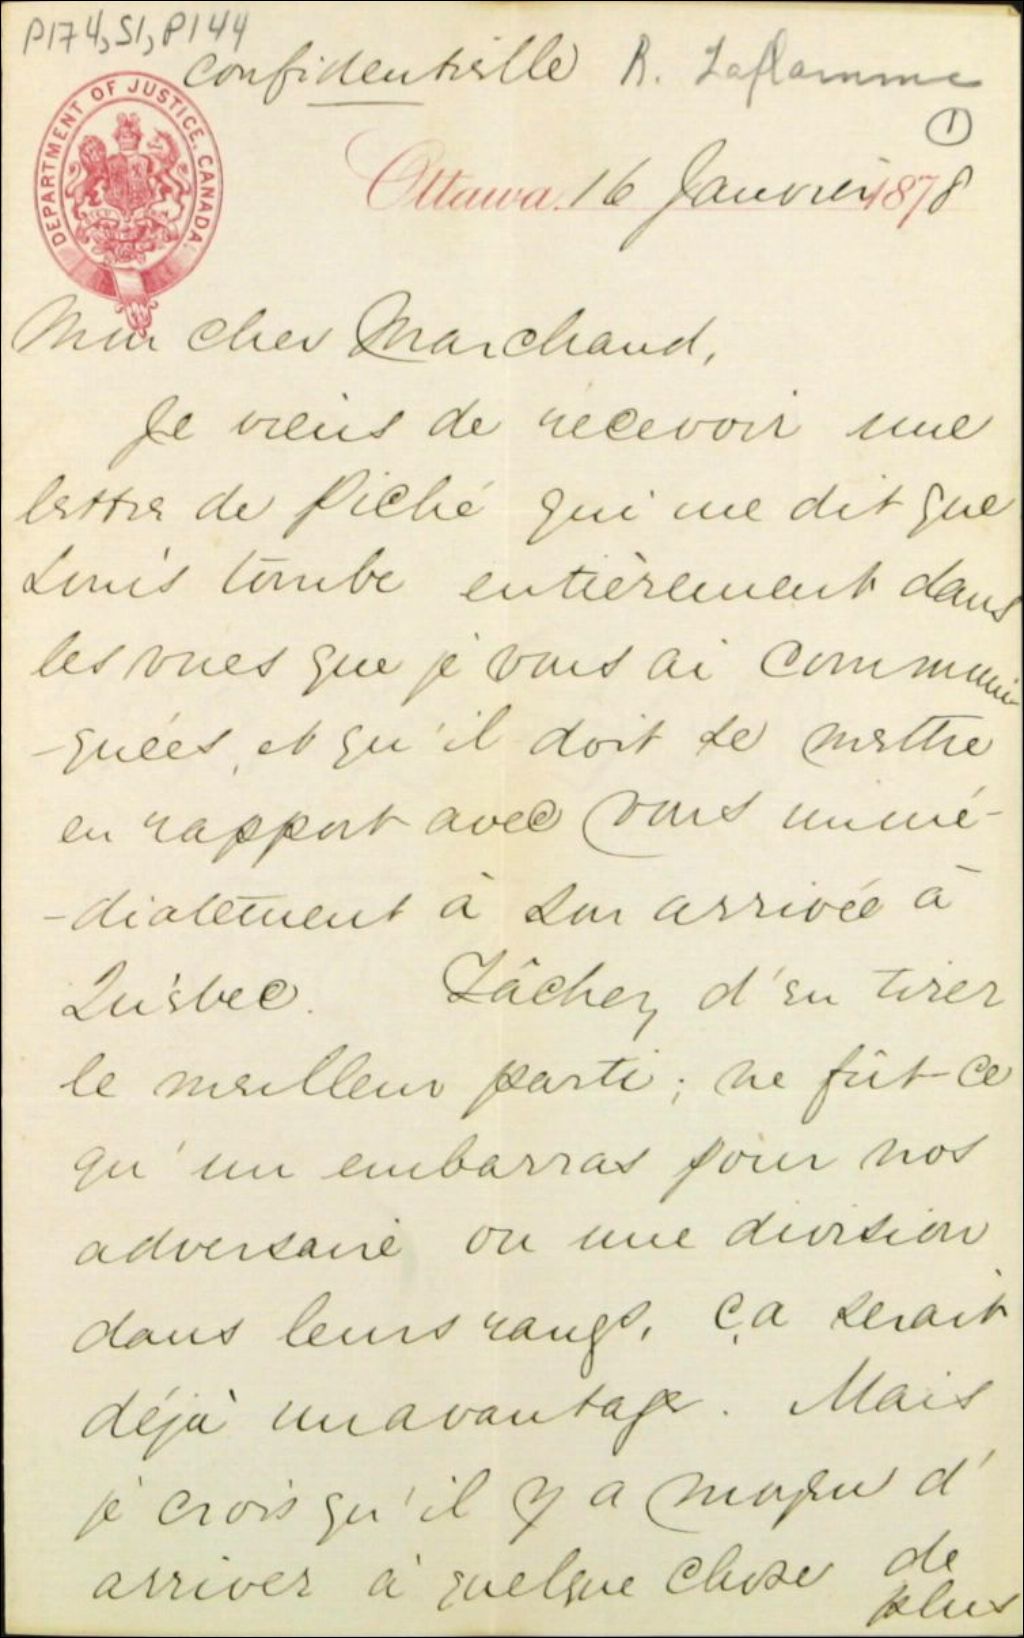 P174, S1, P144
Confidentielle R. Laflamme
1
DEPARTMENT OF JUSTICE. CANADA.
Ottawa 16 Janvier 1878
Mon cher Marchand,
Je viens de recevoir une
lettre de Piché qui me dit que
Louis tombe entièrement dans
les vues que je vous ai communi-
-quées, et qu'il doit se mettre
en rapport avec vous immé-
-diatement à son arrivée à
Québec. Tâchez d'en tirer
le meilleur parti; ne fût-ce
qu'un embarras pour nos
adversaire ou une division
dans leurs rangs, ça serait
déjà un avantage. Mais
je crois qu'il y a moyen d'
arriver à quelque chose de
plus